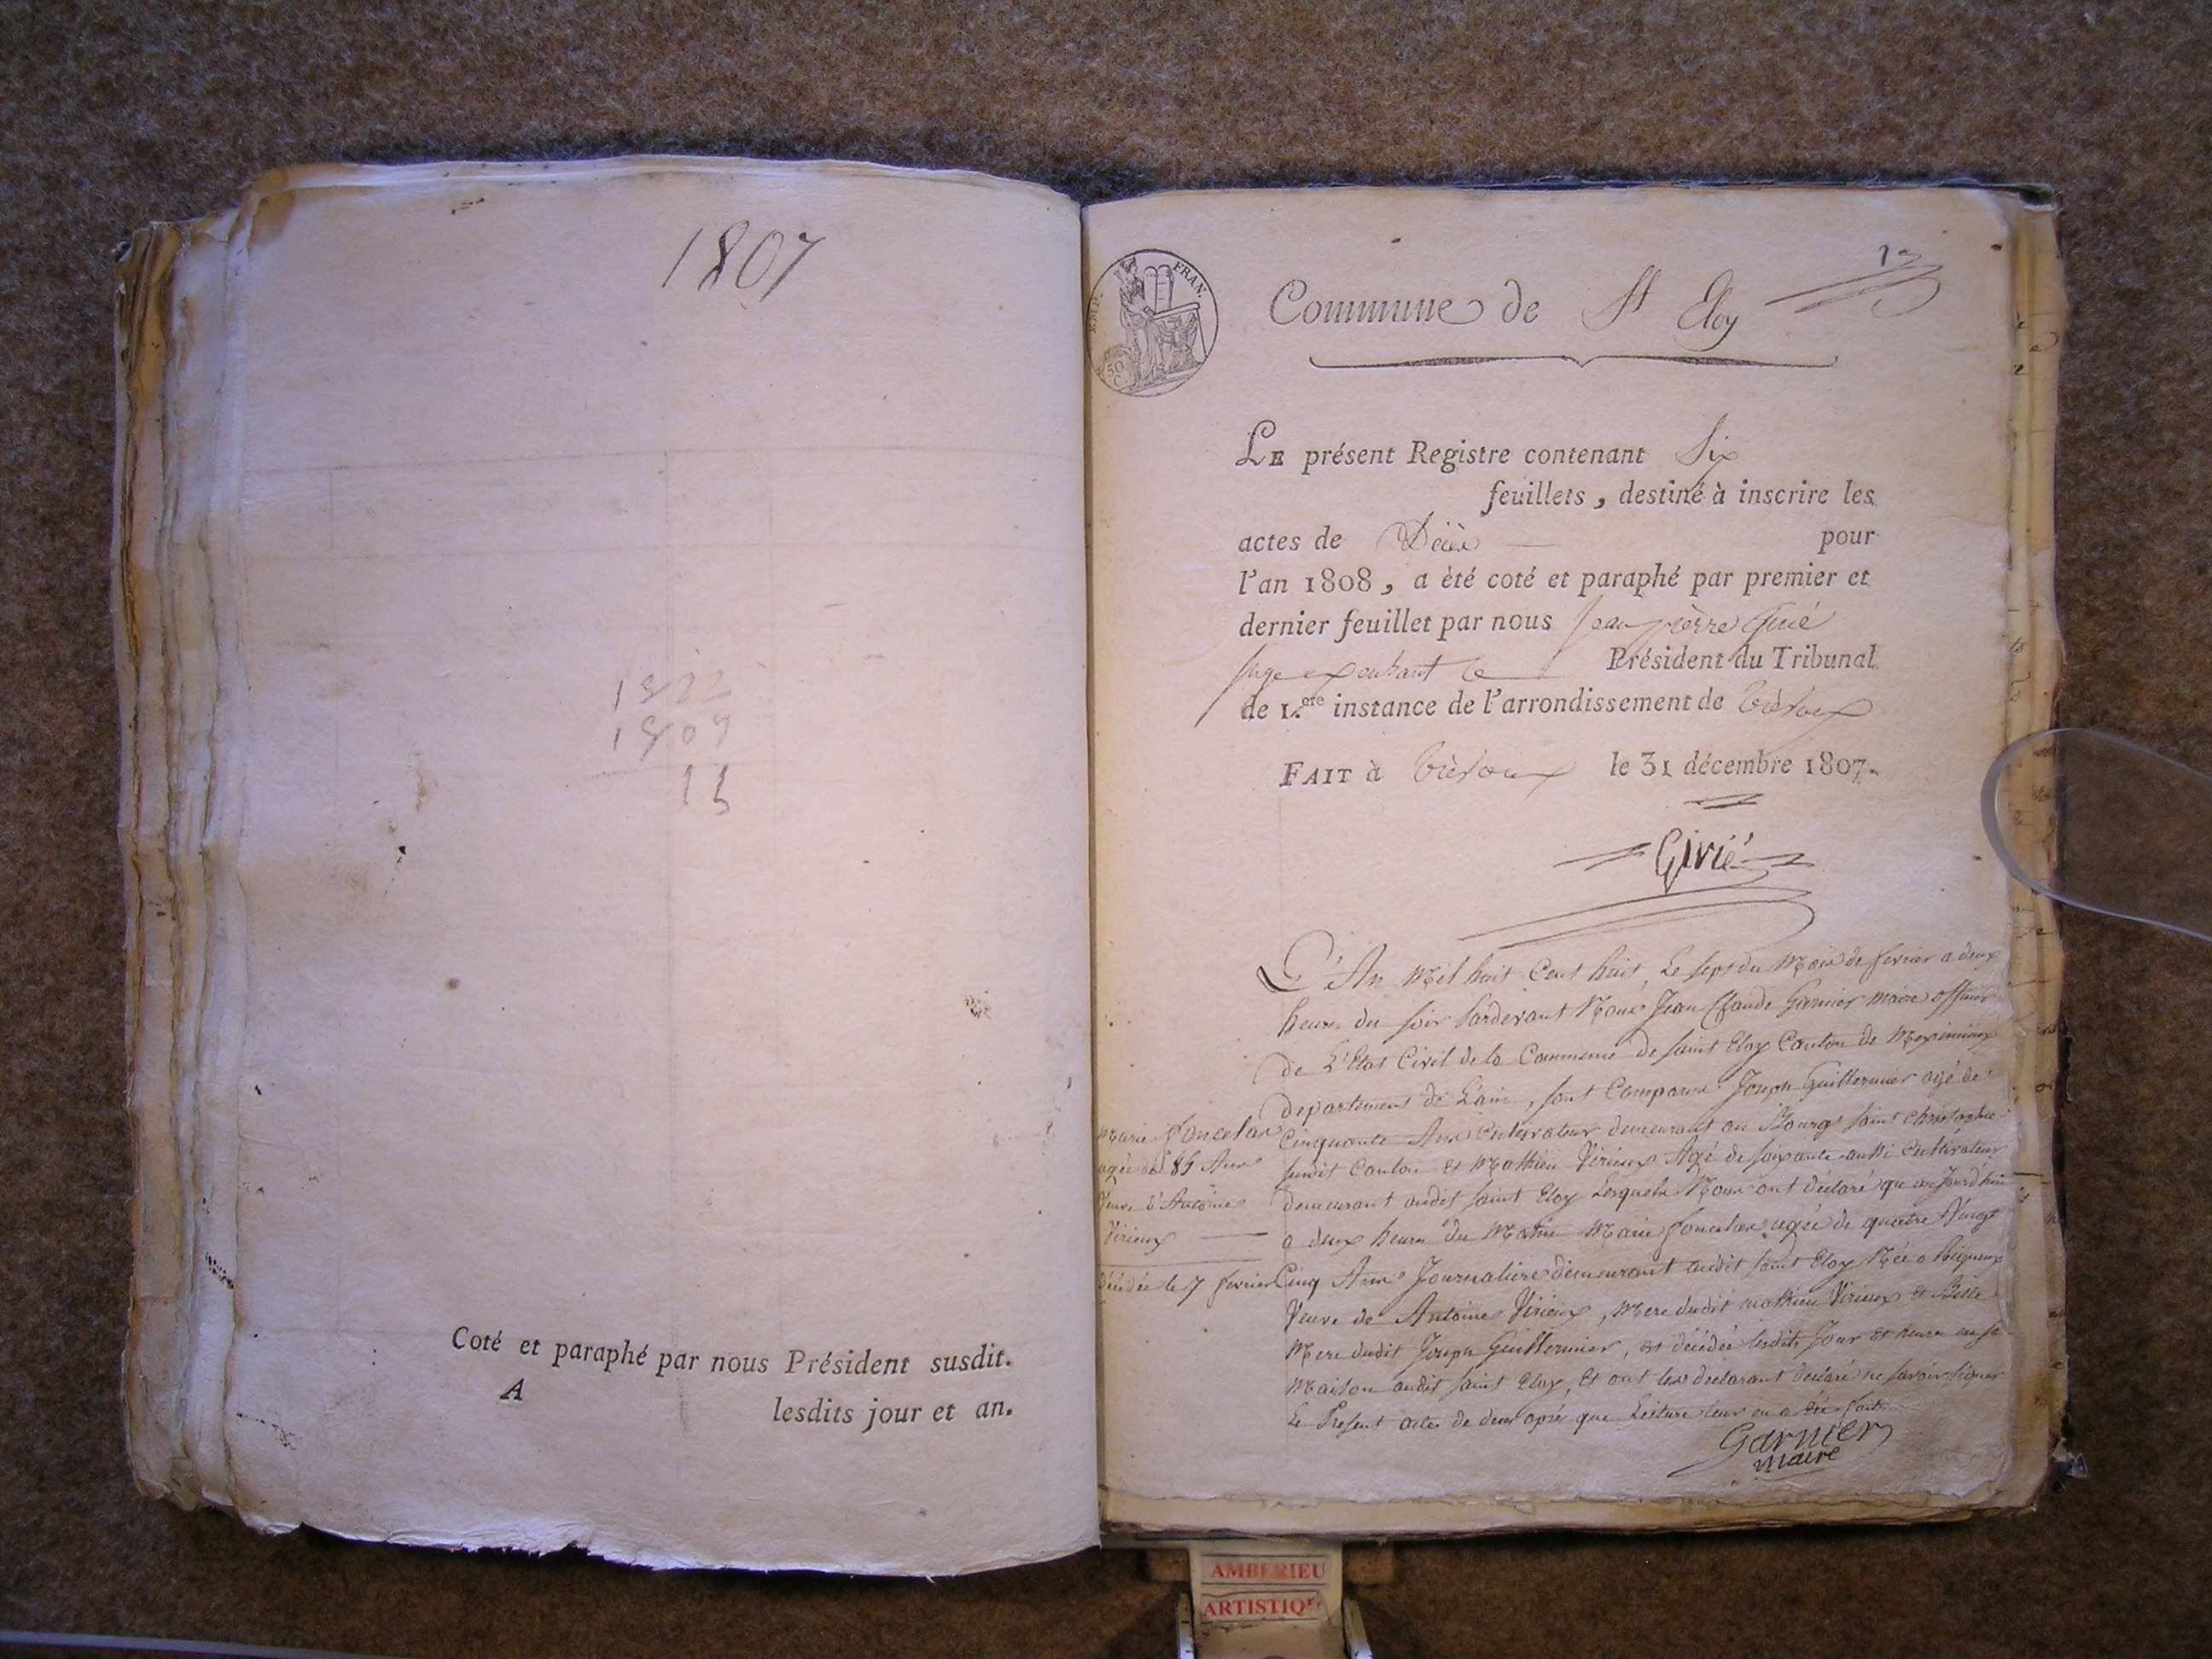 1807
1822
1809
13
Coté et paraphé par nous Président susdit.
A
lesdits jour et an.
EMP. FRAN.
50 C.
Commune de St Eloy
LE présent Registre contenant Six
feuillets, destiné à inscrire les
actes de Décès pour
l'an 1808, a èté coté et paraphé par premier et
dernier feuillet par nous Jean pierre
Juge Président du Tribunal
de 1.ere instance de l'arrondissement de Trévoux
FAIT à Trévoux le 31 décembre 1807.
Givié
L'An Mil huit Cent huit, Le sept du Mois de fevrier a deux
heures du soir Pardevant Nous Jean Claude Garnier maire officier
de L'Etat Civil de la Commune de saint Eloy Canton de Meximieux
departement de L'ain, sont Comparus Joseph Guillermier agé de
Cinquante Ans Cultivateur demeurant au Bourg saint christophe
susdit Canton et Mathieu Virieux Agé de soixante aussi Cultivateur
demeurant audit saint Eloy Lesquels Nous ont déclaré que aujourd'hui
a deux heures du Matin Marie agée de quatre Vingt
Cinq Ans Journaliere demeurant audit saint Eloy Née a
Veuve de Antoine Virieux, Mere dudit mathieu Virieux et Belle
Mere dudit Joseph Guillermier, est décédée lesdits Jour et heures en sa
Maison audit saint Eloy, Et ont les déclarant déclaré ne savoir signer
Le Present acte de deces aprés que Lecture leur en a été faite
Garnier
maire
Marie
agée de 85 Ans
Veuve d'Antoine
Virieux
Décédée le 7 fevrier
AMBERIEU
ARTISTIQ